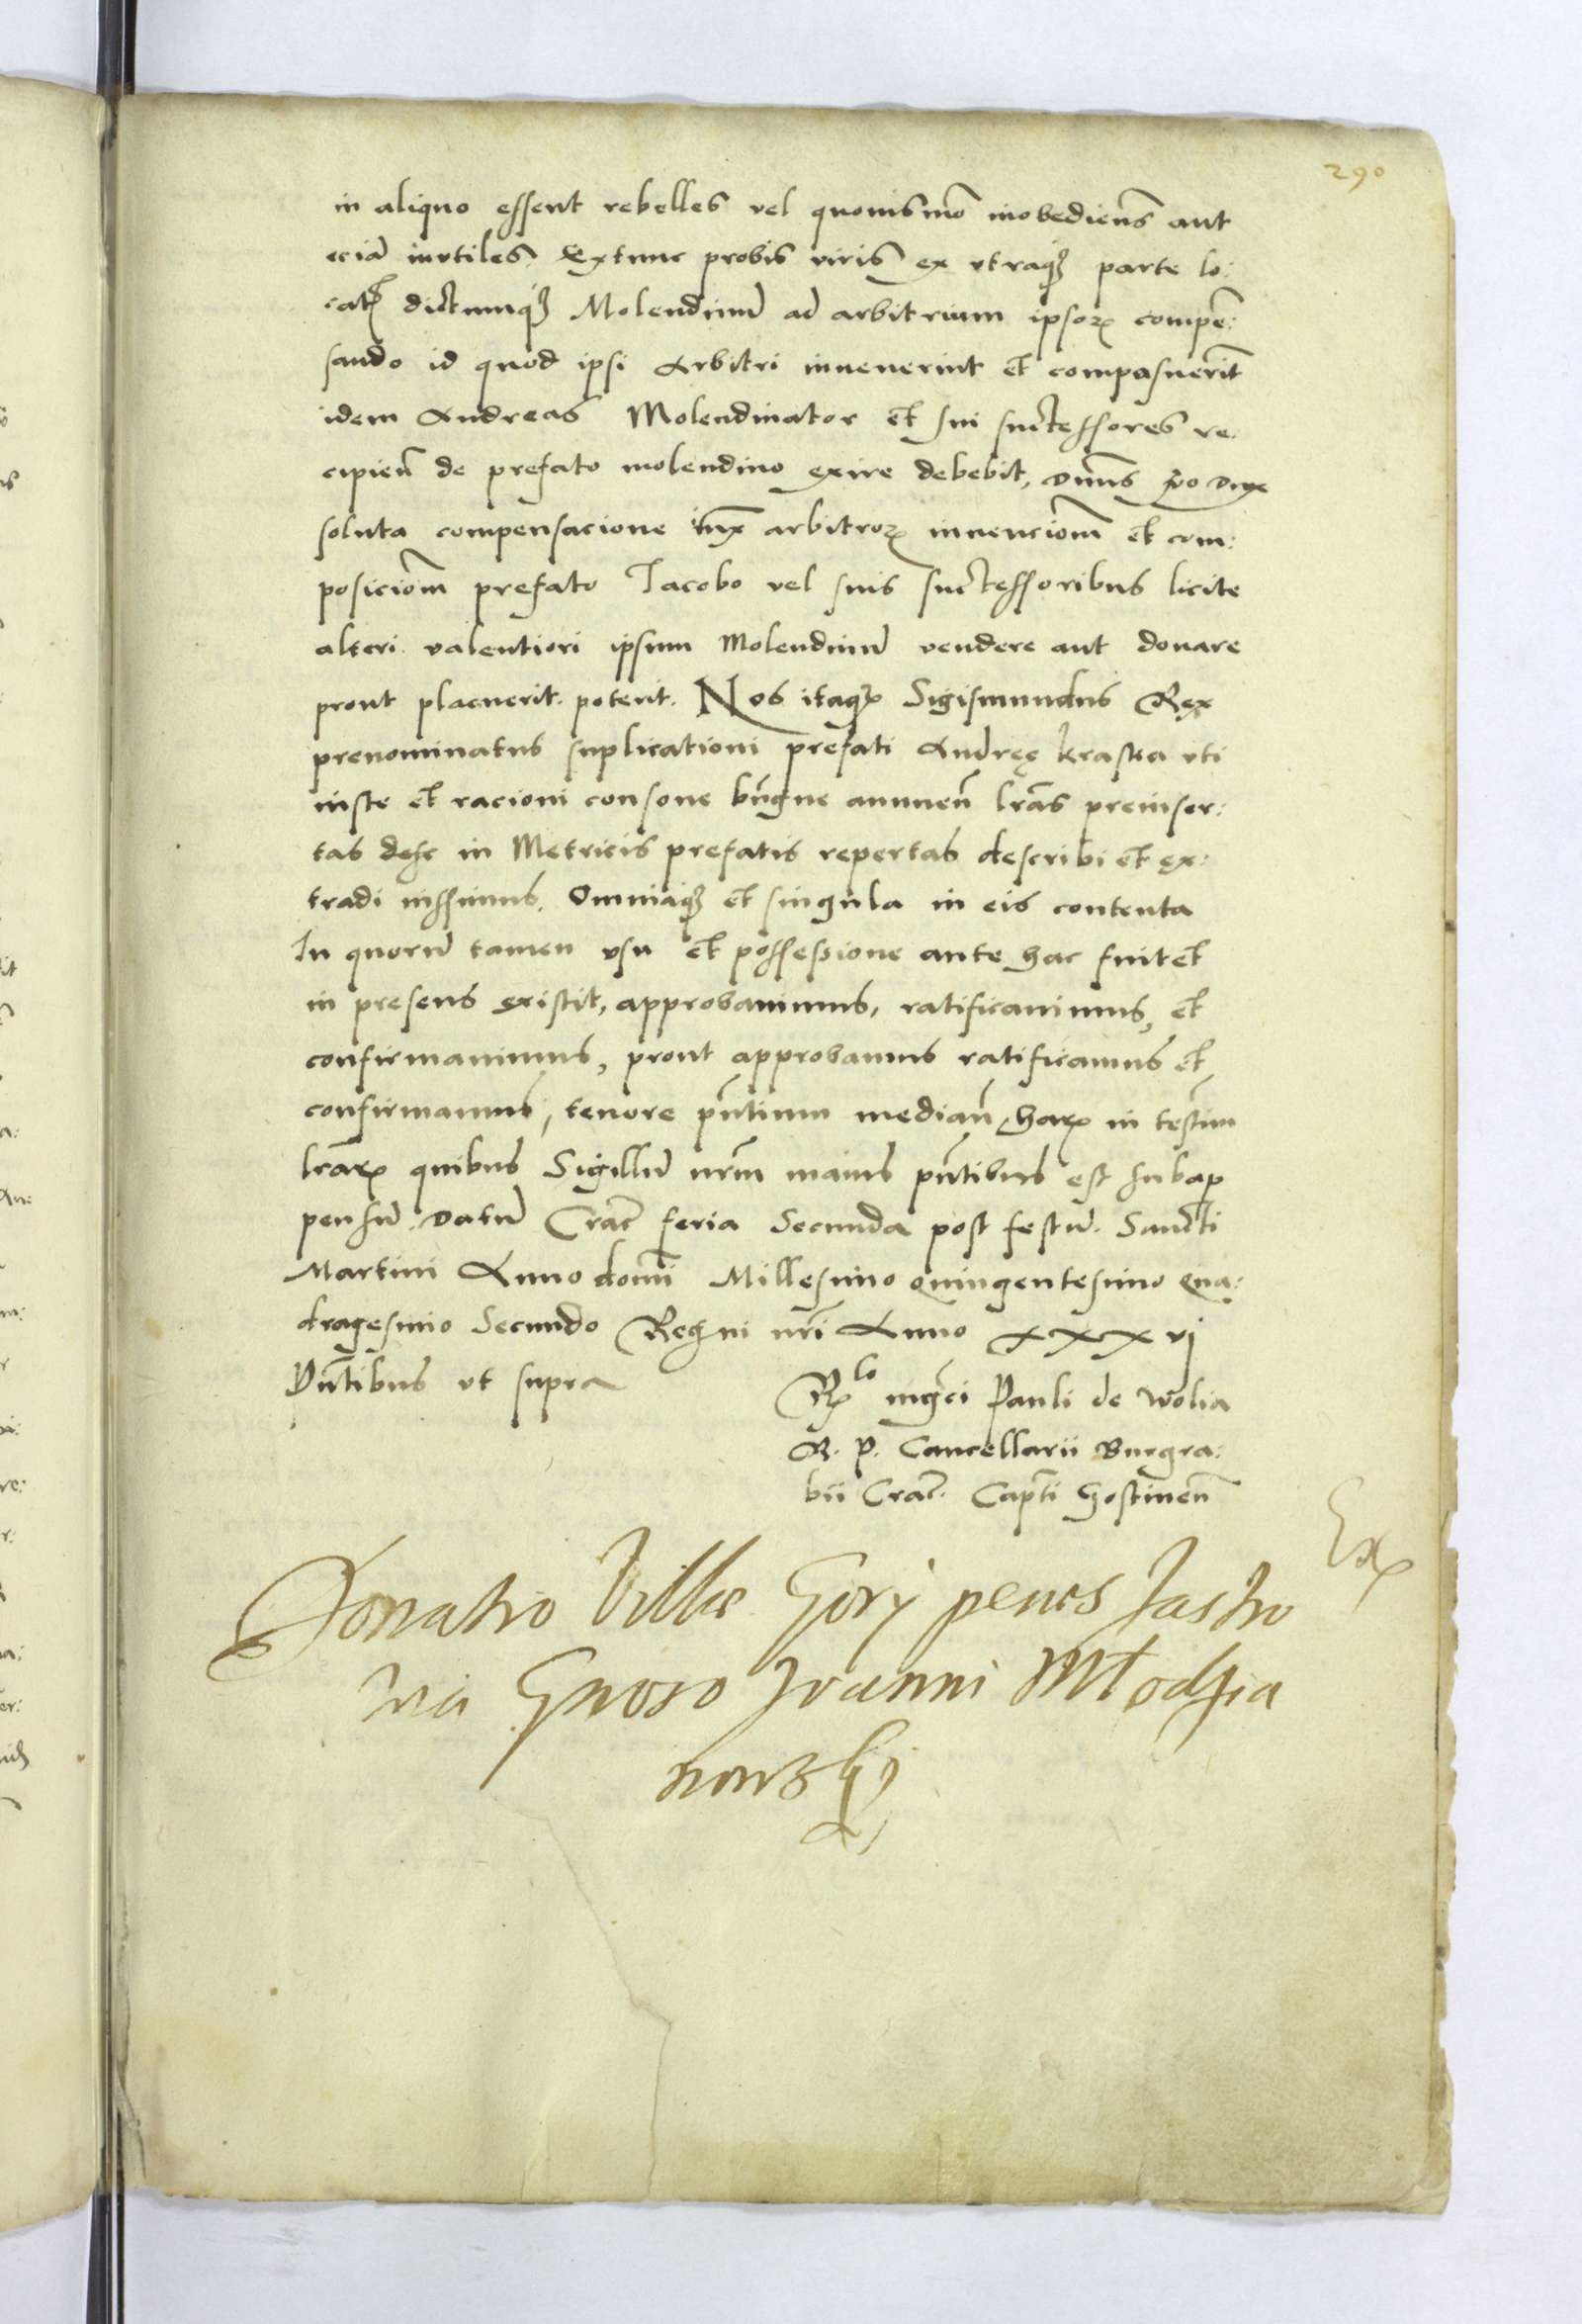 290
in aliquo essent rebelles vel quovismo inobediens aut
ecia inutiles Extunc probis viris ex utraq parte lo:
cat dictumq Molendinu ad arbitrium ipsor compe:
sando id quod ipsi Arbitri invenerint et compasuerit
idem Andreas Molendinator et sui successores re
cipien de prefato molendino exire debebit, 
soluta compensacione arbitror invenciom et com:
posiciom prefato Jacobo vel suis successoribus licite
alteri valentiori ipsum Molendinu vendere aut donare
prout placuerit poterit. Nos itaq Sigismundus Rex
prenominatus suplicationi prefati Andreę Kraska uti
iuste et racioni consone bngne annuen lras preinser:
tas in Metricis prefatis repertas describi et ex:
tradi iussimus, Omniaq et singula in eis contenta
In quoru tamen usu et possessione ante hac fuit et
in presens existit, approbavimus, ratificavimus, et
confirmavimus, prout approbamus ratificamus et
confirmamus, tenore pntium median, Har in testim
lrar quibus Sigillu nrm maius pntibus est subap
pensu. Datu Crac feria Secunda post festu Sancti
Martini Anno domi Millesimo quingentesimo Qua:
dragesimo Secundo Regni nri Anno xxxvj
Pntibus ut supra
Rlo mgci Pauli de Wolia
R. P. Cancellarii Burgra:
bii Crac. Capti Gostinen
Ex
Donatio Villae Gory penes Jastro
via Gnoso Joanni Młodzia
nowski